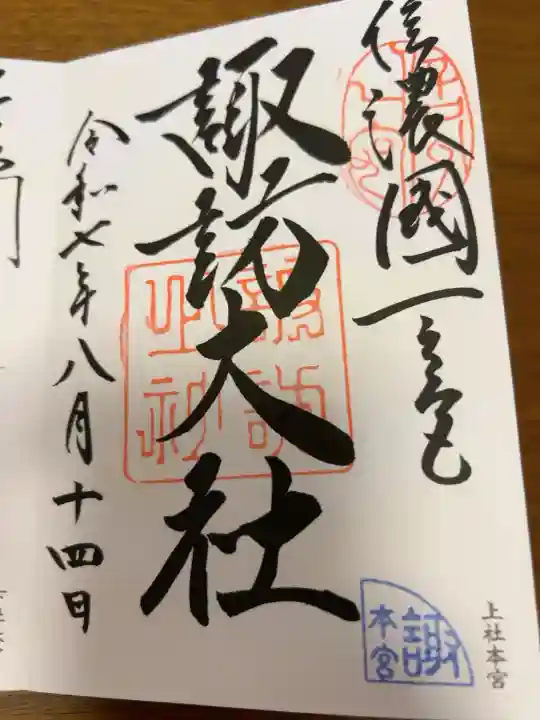 信濃國一之宮
諏訪大社
令和七年八月十四日
諏
本宮
上社本宮